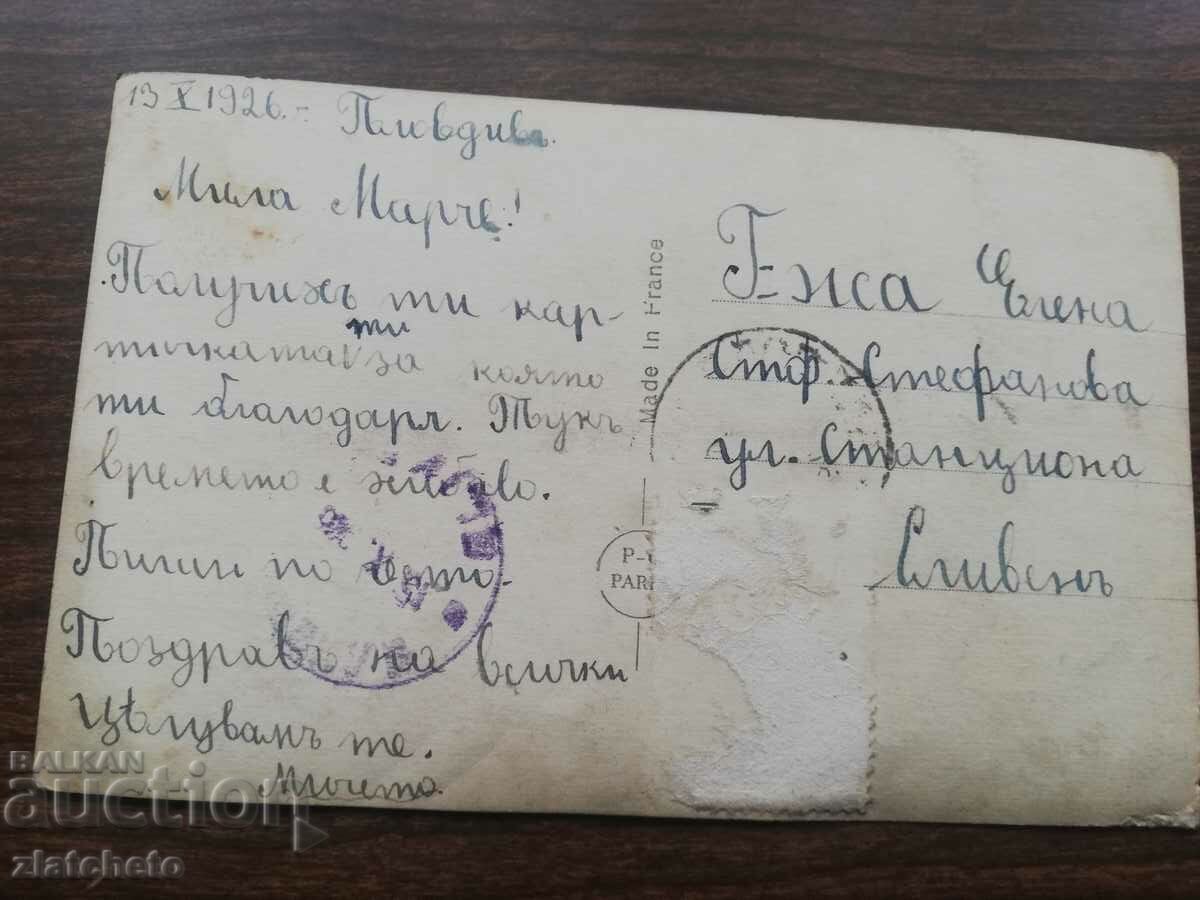 13 X 1926.- Пловдивъ.
Мила Марче!
Получихъ ти кар-
тичката ти за която
ти благодаря. Тукъ
времето е хубаво.
Пиши по често.
Поздравъ на всички
цѣлувамъ те.
Мичето.
Made In France
P-
PAR
Г-жа Елена
Стф. Стефанова
ул. Станциона
Сливенъ
BALKAN
auction
zlatcheto